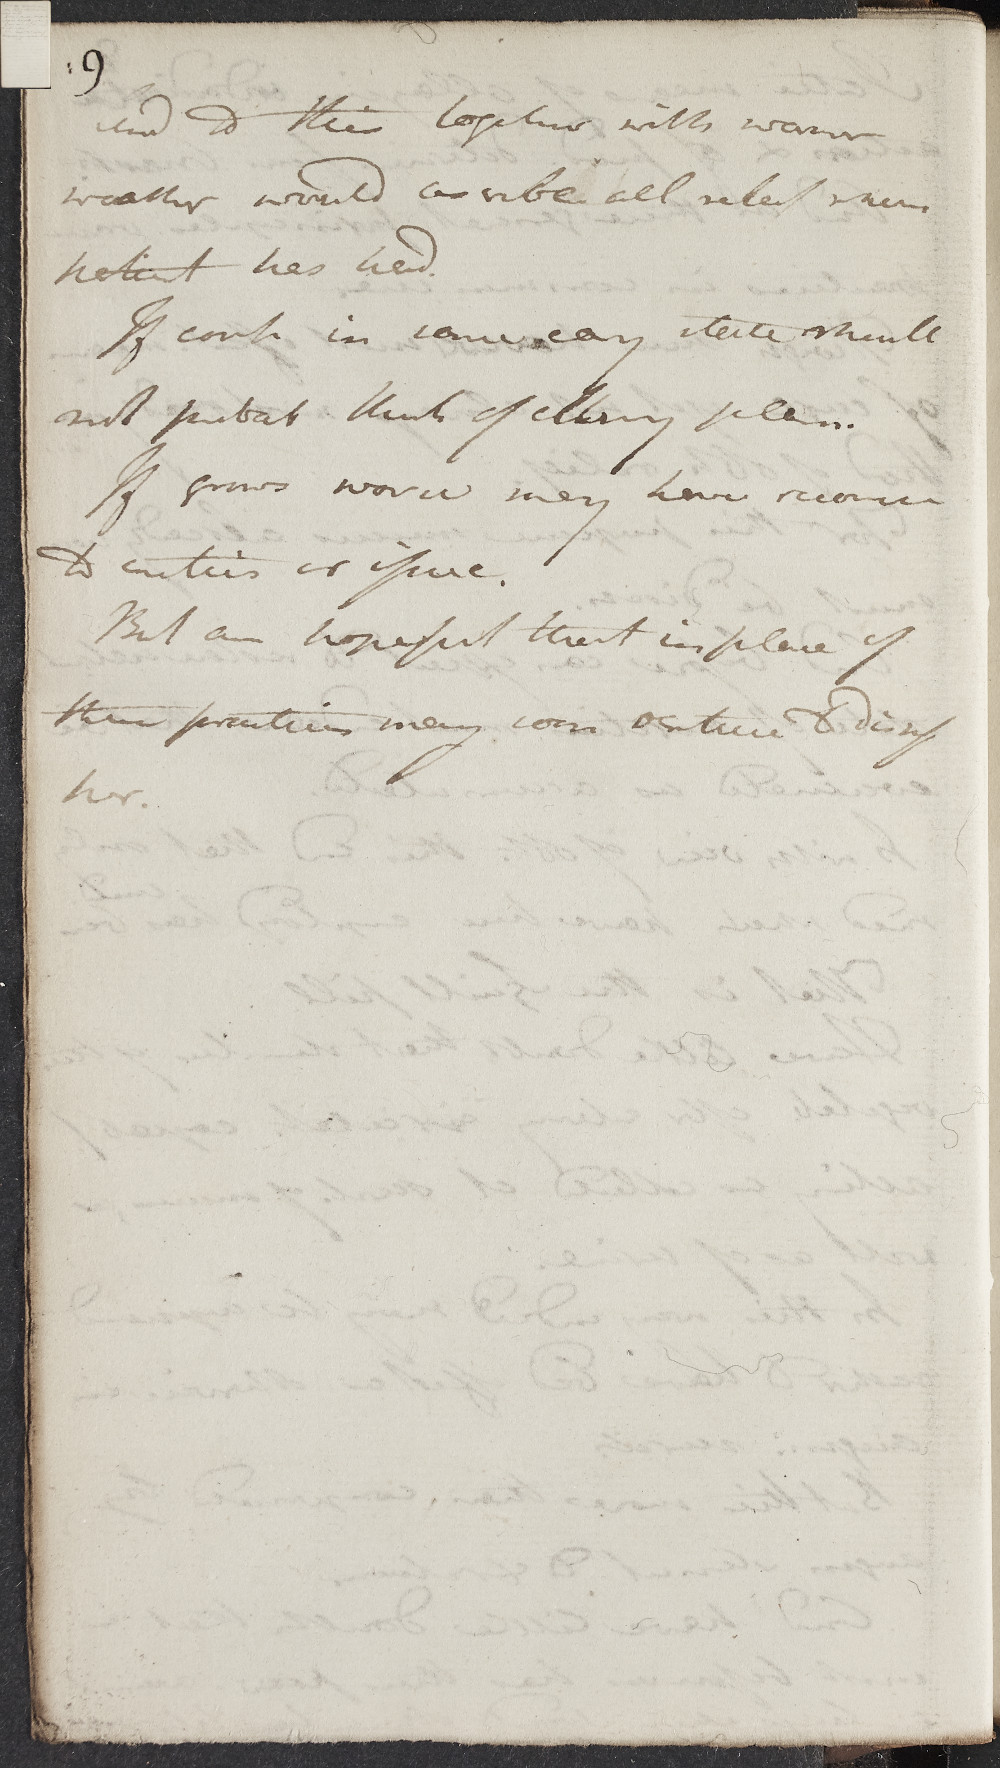 :9
And to this together with warmer
weather would ascribe all relief when
patient has had.
If continues in same easy state should
not probab think of altering plan.
If grows worse may have recourse
to cautics or issue.
But am hopeful that in place of
these practices may soon venture to dismiss
her.